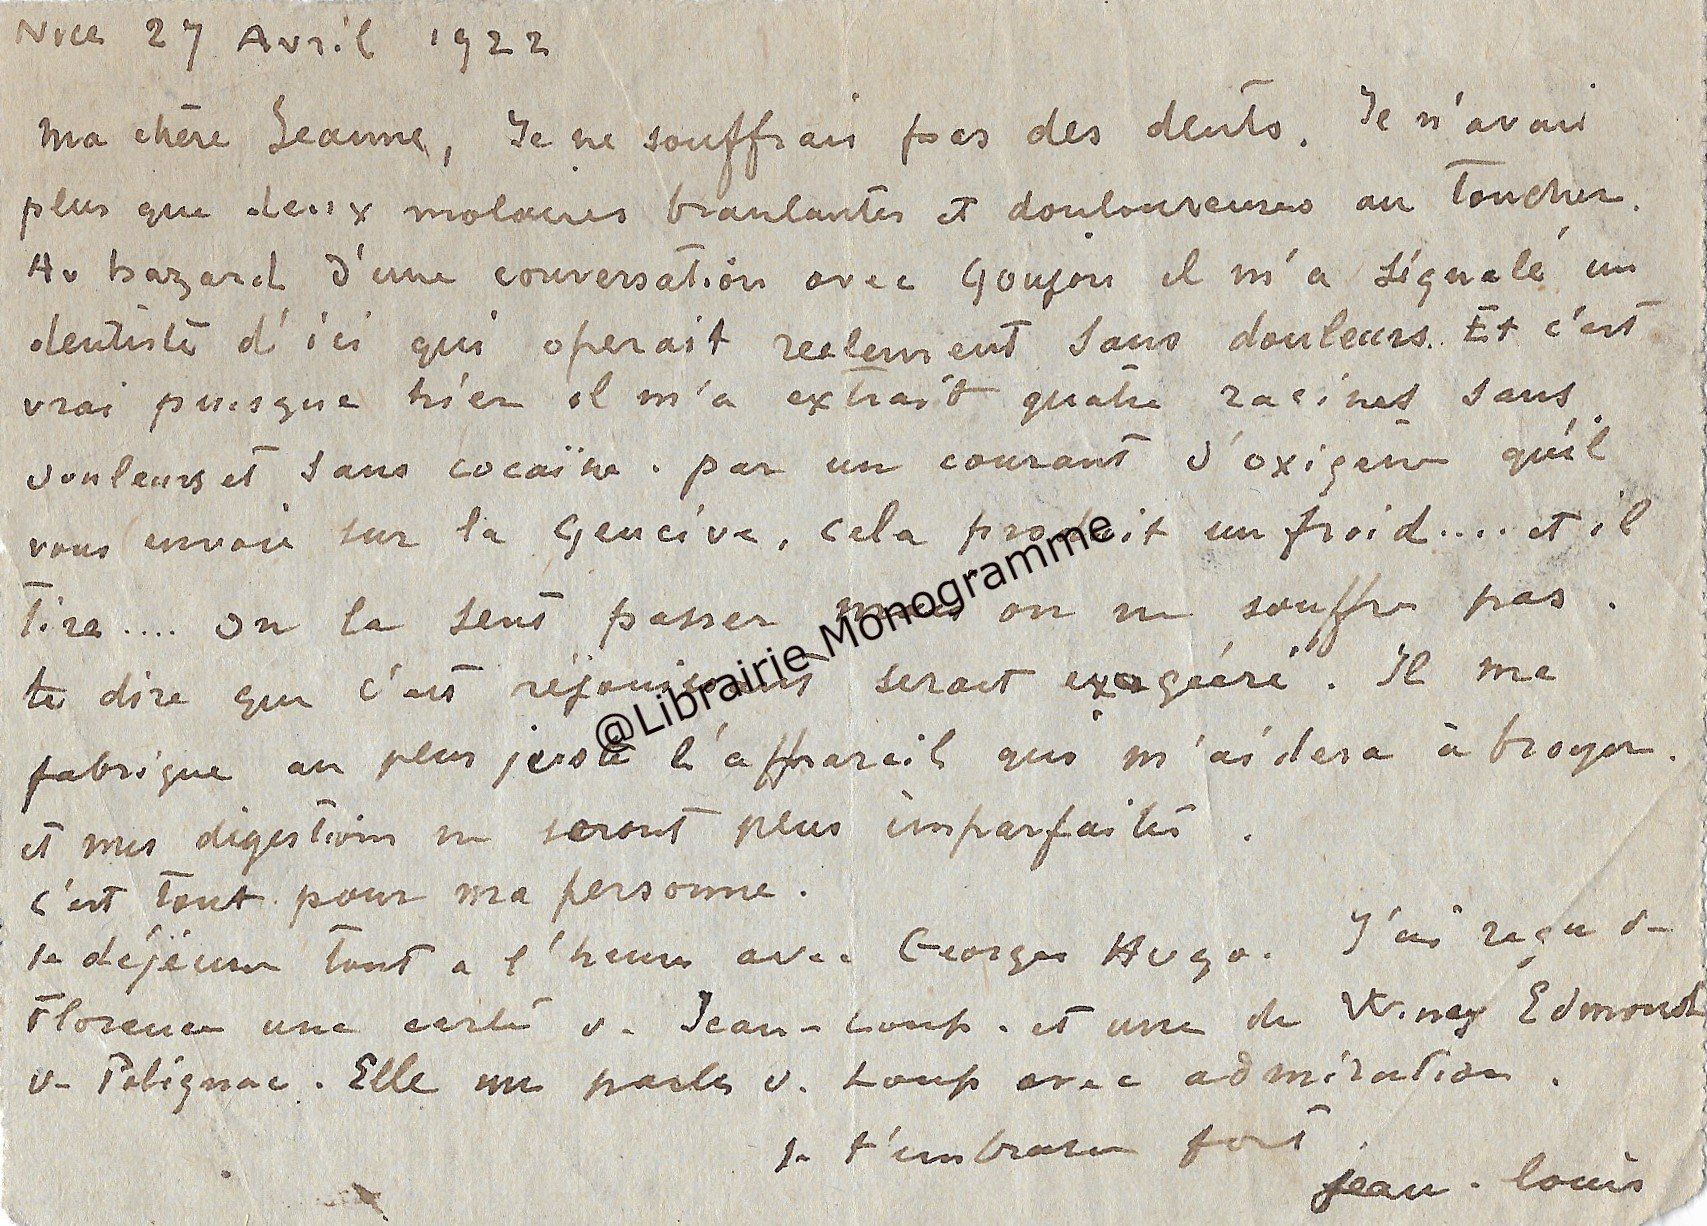 Nice 27 Avril 1922
Ma chère Jeanne, Je ne souffrais pas des dents. Je n'avais
plus que deux molaires branlantes et douloureuses au toucher.
Au hazard d'une conversation avec Goujon il m'a signalé un
dentiste d'ici qui operait reelement sans douleurs. Et c'est
vrai puisque hier il m'a extrait quatre racines sans
douleurs et sans cocaïne. par un courant d'oxigène qu'il
vous envoie sur la Gencive, cela produit un froid.... et il
tire.... on le sent passer mais on ne souffre pas.
te dire que c'est réjouissant serait exagéré. Il me
fabrique au plus juste l'appareil qui m'aidera à broyer.
et mes digestions ne seront plus imparfaites.
c'est tout pour ma personne.
Je déjeune tout a l'heure avec Georges Hugo. J'ai reçu de
Florence une carte de Jean-Loup. et une de Winny Edmond
de Polignac. Elle me parle de Loup avec admiration.
Je t'embrasse fort.
jean-louis
@Librairie Monogramme